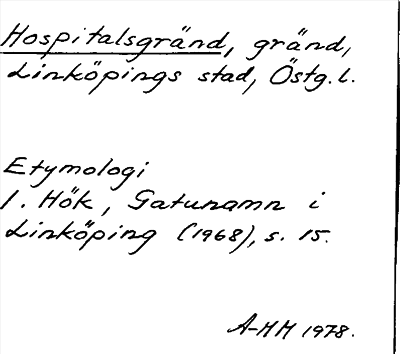 Hospitalsgränd, gränd,
Linköpings stad, Östg.l.
Etymologi
I. Hök, Gatunamn i
Linköping (1968), s. 15.
A-MM 1978.